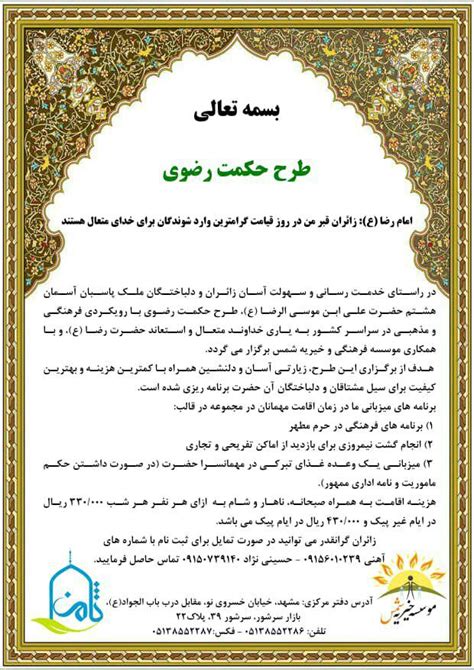 بسمه تعالی
طرح حکمت رضوی
امام رضا (ع): زائران قبر من در روز قیامت گرامترین وارد شوندگان برای خدای متعال هستند
در راستای خدمت رسانی و سهولت آسان زائران و دلباختگان ملک پاسبان آسمان
هشتم حضرت علی ابن موسی الرضا (ع)، طرح حکمت رضوی با رویکردی فرهنگی
و مذهبی در سراسر کشور به یاری خداوند متعال و استعاند حضرت رضا (ع)، و با
همکاری موسسه فرهنگی و خیریه شمس برگزار می گردد.
هدف از برگزاری این طرح، زیارتی آسان و دلنشین همراه با کمترین هزینه و بهترین
کیفیت برای سیل مشتاقان و دلباختگان آن حضرت برنامه ریزی شده است.
برنامه های میزبانی ما در زمان اقامت مهمانان در مجموعه در قالب:
۱) برنامه های فرهنگی در حرم مطهر
۲) انجام گشت نیمروزی برای بازدید از اماکن تفریحی و تجاری
۳) میزبانی یک وعده غذای تبرکی در مهمانسرا حضرت (در صورت داشتن حکم
ماموریت و نامه اداری ممهور).
هزینه اقامت به همراه صبحانه، ناهار و شام به ازای هر نفر هر شب ۳۳۰/۰۰۰ ریال
در ایام غیر پیک و ۴۳۰/۰۰۰ ریال در ایام پیک می باشد.
زائران گرانقدر می توانید در صورت تمایل برای ثبت نام با شماره های
آهنی ۰۹۱۵۶۰۱۰۲۳۹ - حسینی نژاد ۰۹۱۵۰۷۳۹۱۴۰ تماس حاصل فرمایید.
آدرس دفتر مرکزی: مشهد، خیابان خسروی نو، مقابل درب باب الجواد(ع)،
بازار سرشور، سرشور ۳۹، پلاک۲۲
تلفن: ۰۵۱۳۸۵۵۲۲۸۶ - فکس:۰۵۱۳۸۵۵۲۲۸۷
موسسه خیریه شمس
ثامن